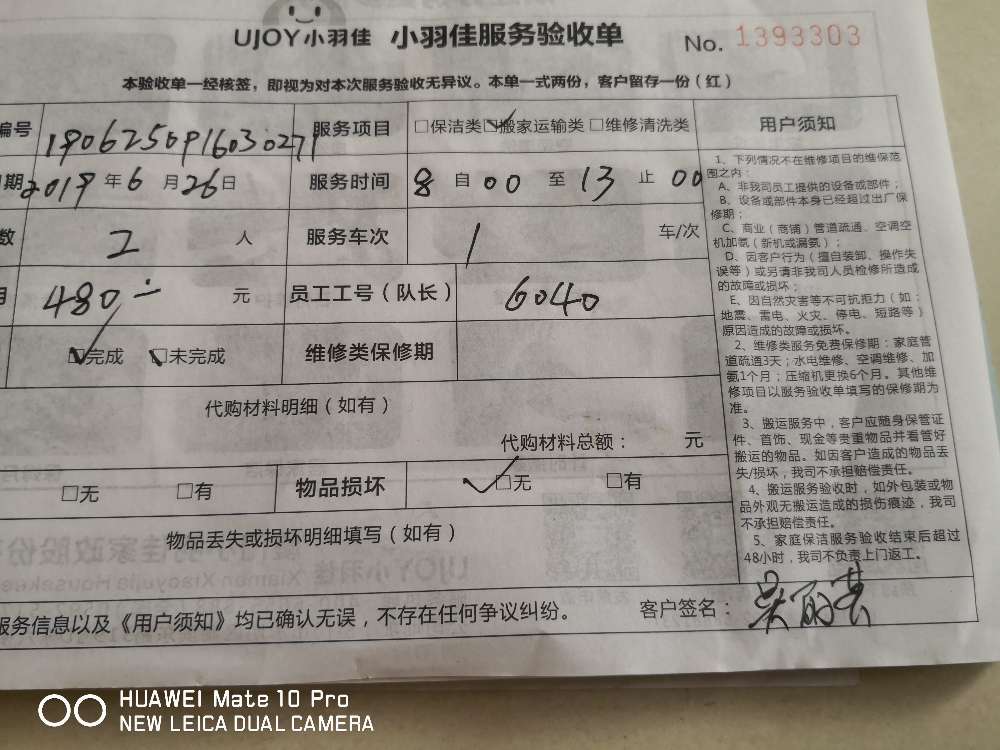 UJOY小羽佳 小羽佳服务验收单 No. 1393303
本验收单一经核签，即视为对本次服务验收无异议。本单一式两份，客户留存一份（红）
编号 1906250916030271 服务项目 □保洁类 ☑搬家运输类 □维修清洗类 用户须知
期 2019 年 6 月 26 日 服务时间 8 自 00 至 13 止 00
数 2 人 服务车次 1 车/次
480 元 员工工号（队长） 6040
☑完成 □未完成 维修类保修期
代购材料明细（如有）
代购材料总额： 元
□无 □有 物品损坏 ☑无 □有
物品丢失或损坏明细填写（如有）
1、下列情况不在维修项目的维保范
围之内：
A、非我司员工提供的设备或部件；
B、设备或部件本身已经超过出厂保
修期；
C、商业（商铺）管道疏通、空调空
机加氨（新机或漏氨）；
D、因客户行为（擅自装卸、操作失
误等）或另请非我司人员检修所造成
的故障或损坏；
E、因自然灾害等不可抗拒力（如：
地震、雷电、火灾、停电、短路等）
原因造成的故障或损坏。
2、维修类服务免费保修期：家庭管
道疏通3天；水电维修、空调维修、加
氨1个月；压缩机更换6个月。其他维
修项目以服务验收单填写的保修期为
准。
3、搬运服务中，客户应随身保管证
件、首饰、现金等贵重物品并看管好
搬运的物品。如因客户造成的物品丢
失/损坏，我司不承担赔偿责任。
4、搬运服务验收时，如外包装或物
品外观无搬运造成的损伤痕迹，我司
不承担赔偿责任。
5、家庭保洁服务验收结束后超过
48小时，我司不负责上门返工。
服务信息以及《用户须知》均已确认无误，不存在任何争议纠纷。 客户签名：
HUAWEI Mate 10 Pro
NEW LEICA DUAL CAMERA